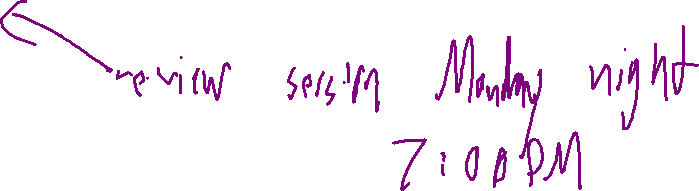 review session Monday night
7:00 PM